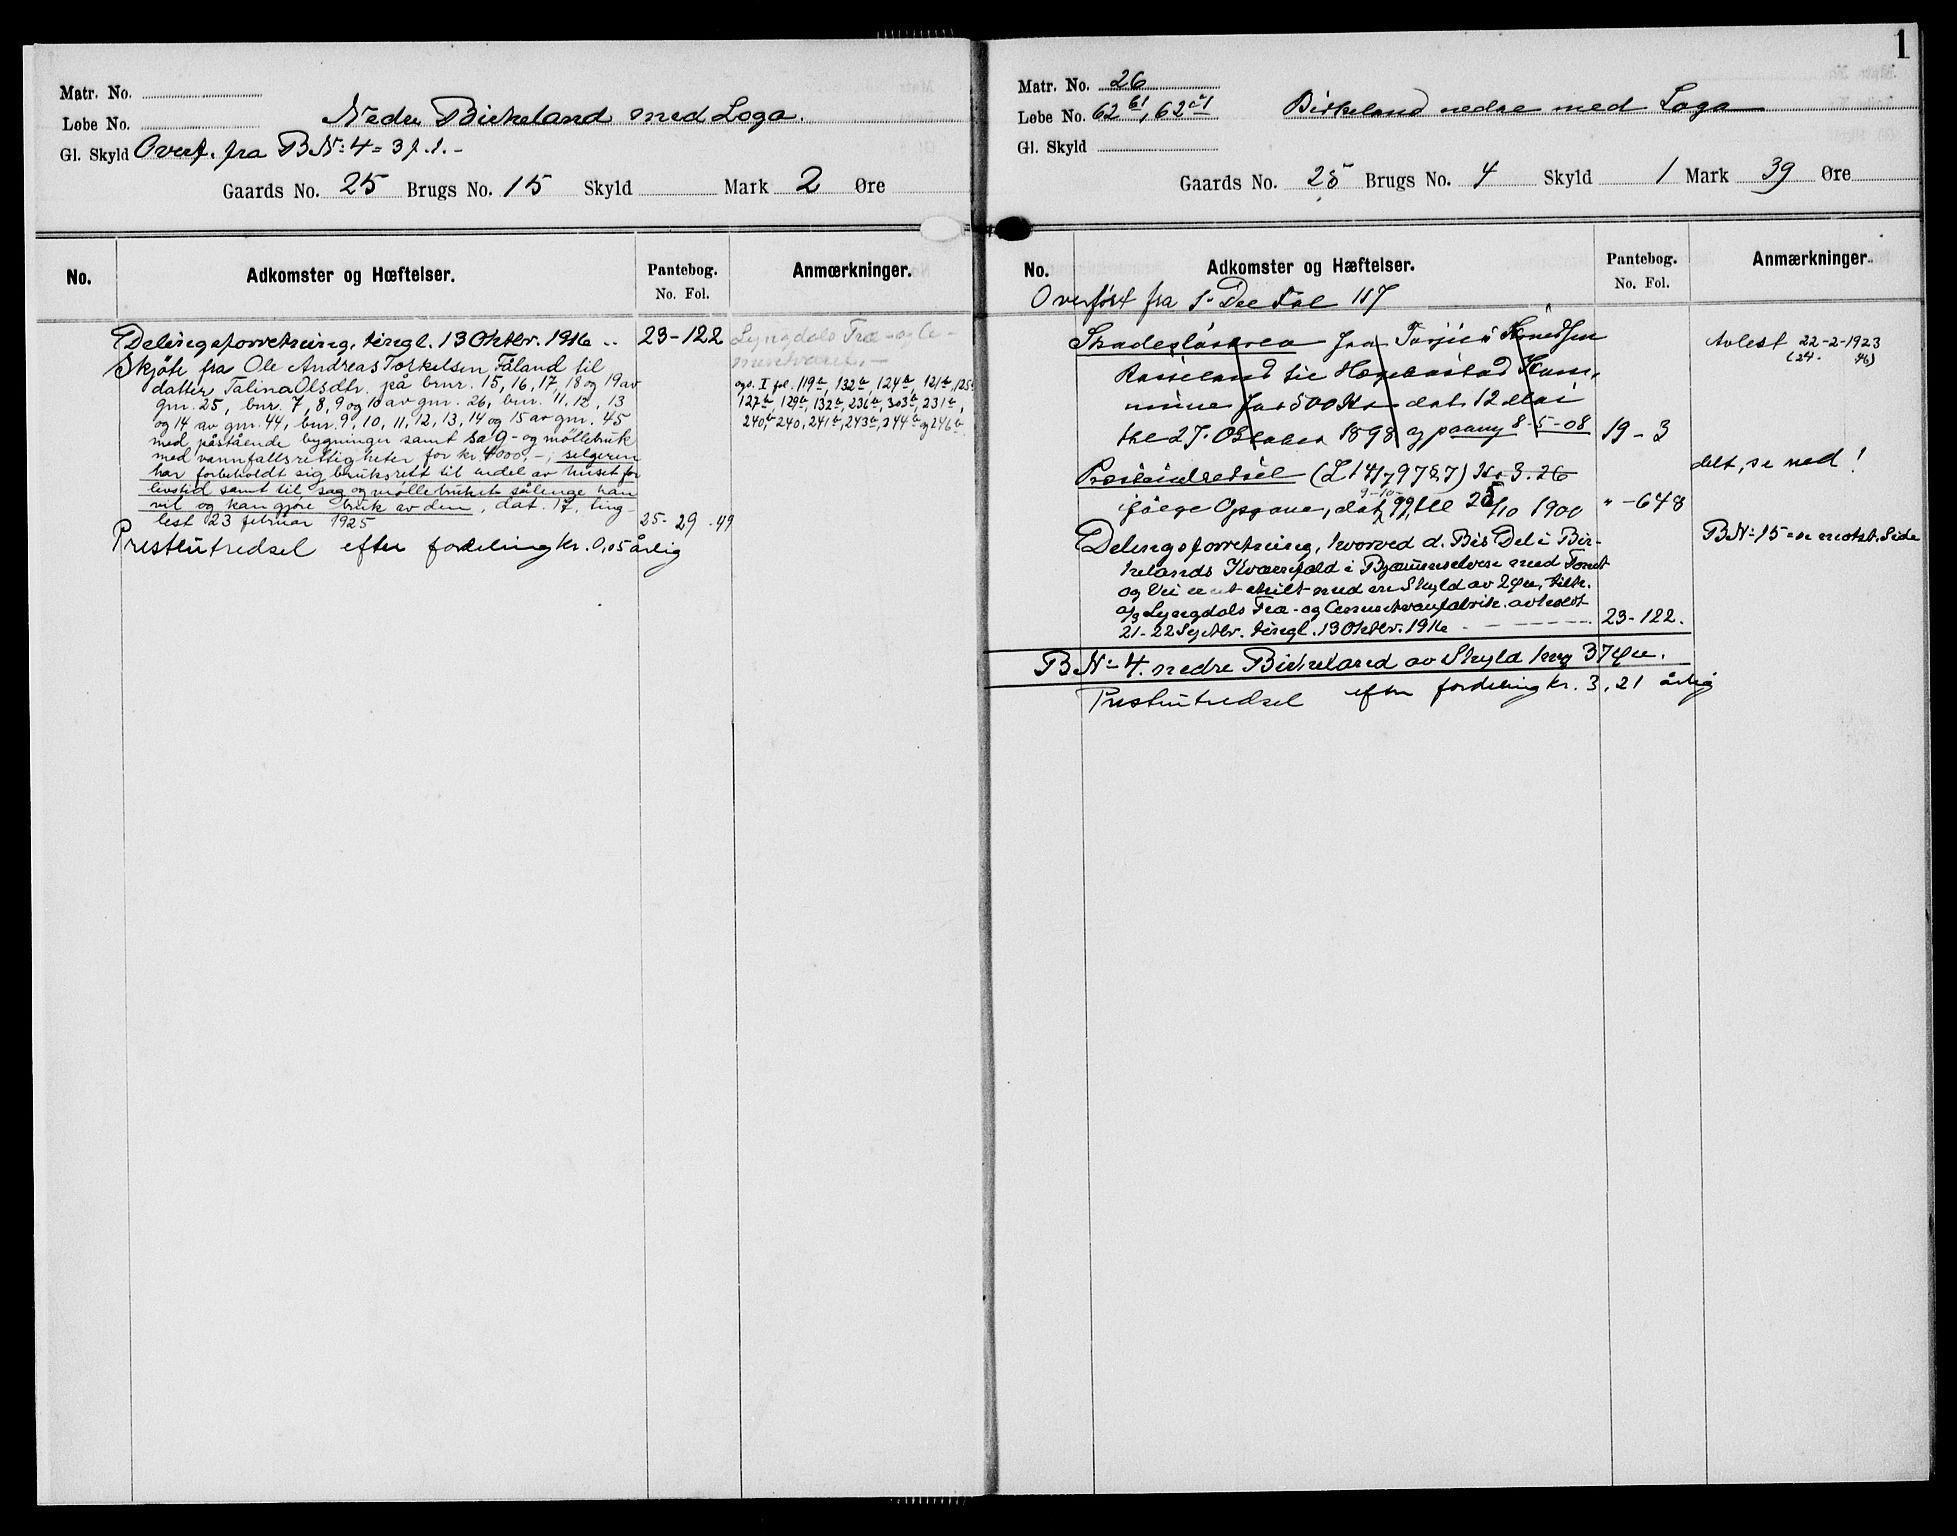 Matr. No.
Løbe No. Nedre Birkeland med Loga.
Gl. Skyld Overf. fra BN: 4 = 3 f. 1. -
Gaards No. 25 Brugs No. 15 Skyld Mark 2 Øre
No. Adkomster og Hæftelser. Pantebog. No. Fol. Anmærkninger.
Delingsforretning, tingl. 13 Oktbr. 1916 .. 23-122 Lyngdals Træ- og Ce-
mentvaref. -
Skjøte fra Ole Andreas Torkelsen Fåland til
datter Talina Olsdtr. på bnr. 15, 16, 17, 18 og 19 av
gnr. 25, bnr. 7, 8, 9 og 10 av gnr. 26, bnr. 11, 12, 13
og 14 av gnr. 44, bnr. 9, 10, 11, 12, 13, 14 og 15 av gnr. 45
med påstående bygninger samt sag- og møllebruk
med vannfallsrettigheter for kr. 4000,-; selgeren
har forbeholdt sig bruksrett til andel av huset for
livstid samt til sag og møllebruket sålenge han
vil og kan gjøre bruk av dem, dat. 17, ting-
lest 23 februar 1925 25-29-49
ogs. I fol. 119a, 132a, 124a, 121a, 125a
127a, 129a, 132a, 236a, 303a, 231a,
240a, 240, 241a, 243a, 244a og 246a.
Prestutredsel efter fordeling kr. 0,05 årlig
1
Matr. No. 26
Løbe No. 62 b1, 62 c1 Birkeland nedre med Loga
Gl. Skyld
Gaards No. 25 Brugs No. 4 Skyld 1 Mark 39 Øre
No. Adkomster og Hæftelser. Pantebog. No. Fol. Anmærkninger.
Overført fra 1. Del Fol 117
Skadesløsbrev fra Torjus Knudsen
Rasseland til Hægebostad Kom-
mune for 500 Kr dat. 12 Mai
thl 27. Oktober 1898 og paany 8-5-08 19-3
Avlest 22-2-1923
(24. 46)
Præsteutredsel (L 14/7 97 § 7) Kr 3.26 delt, se ned!
ifølge Opgave, dat. 9-10-99, thl 25/10 1900 " -648
Delingsforretning, hvorved d. Brs Del i Bir-
kelands Kværnfald i Bjaaunselven med Tomt
og Vei er utskilt med en Skyld av 2 Øre, tilh.
A/S Lyngdals Træ- og Cementvarefabrik. avholdt
21-22 Septbr. tingl. 13 Oktbr. 1916 23-122.
BN: 15 = se motst. Side
BN: 4. nedre Birkeland av Skyld 1 mrk 37 Øre.
Prestutredsel efter fordeling kr. 3,21 årlig